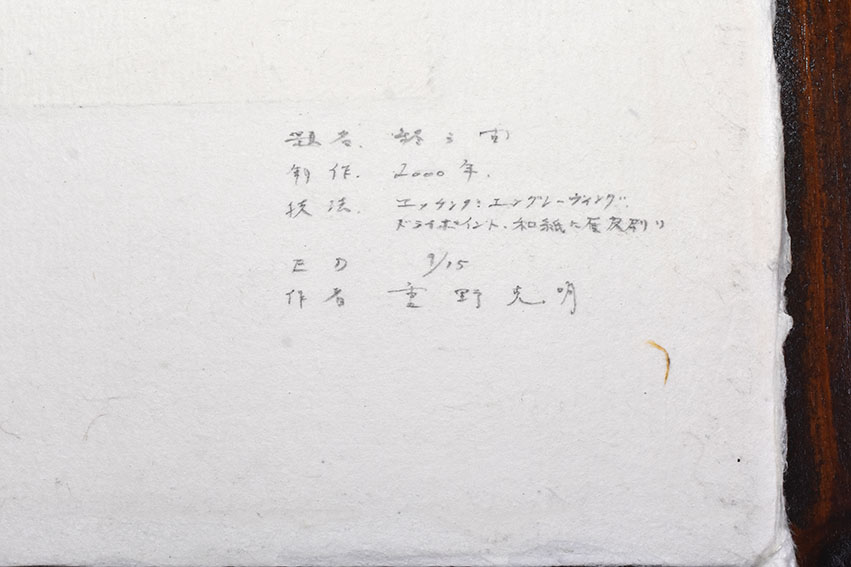 題名.
制作. 2000年.
技法. エッチング:エングレーヴィング.
ドライポイント.和紙に雁皮刷り
ED 9/15
作者 重野克明